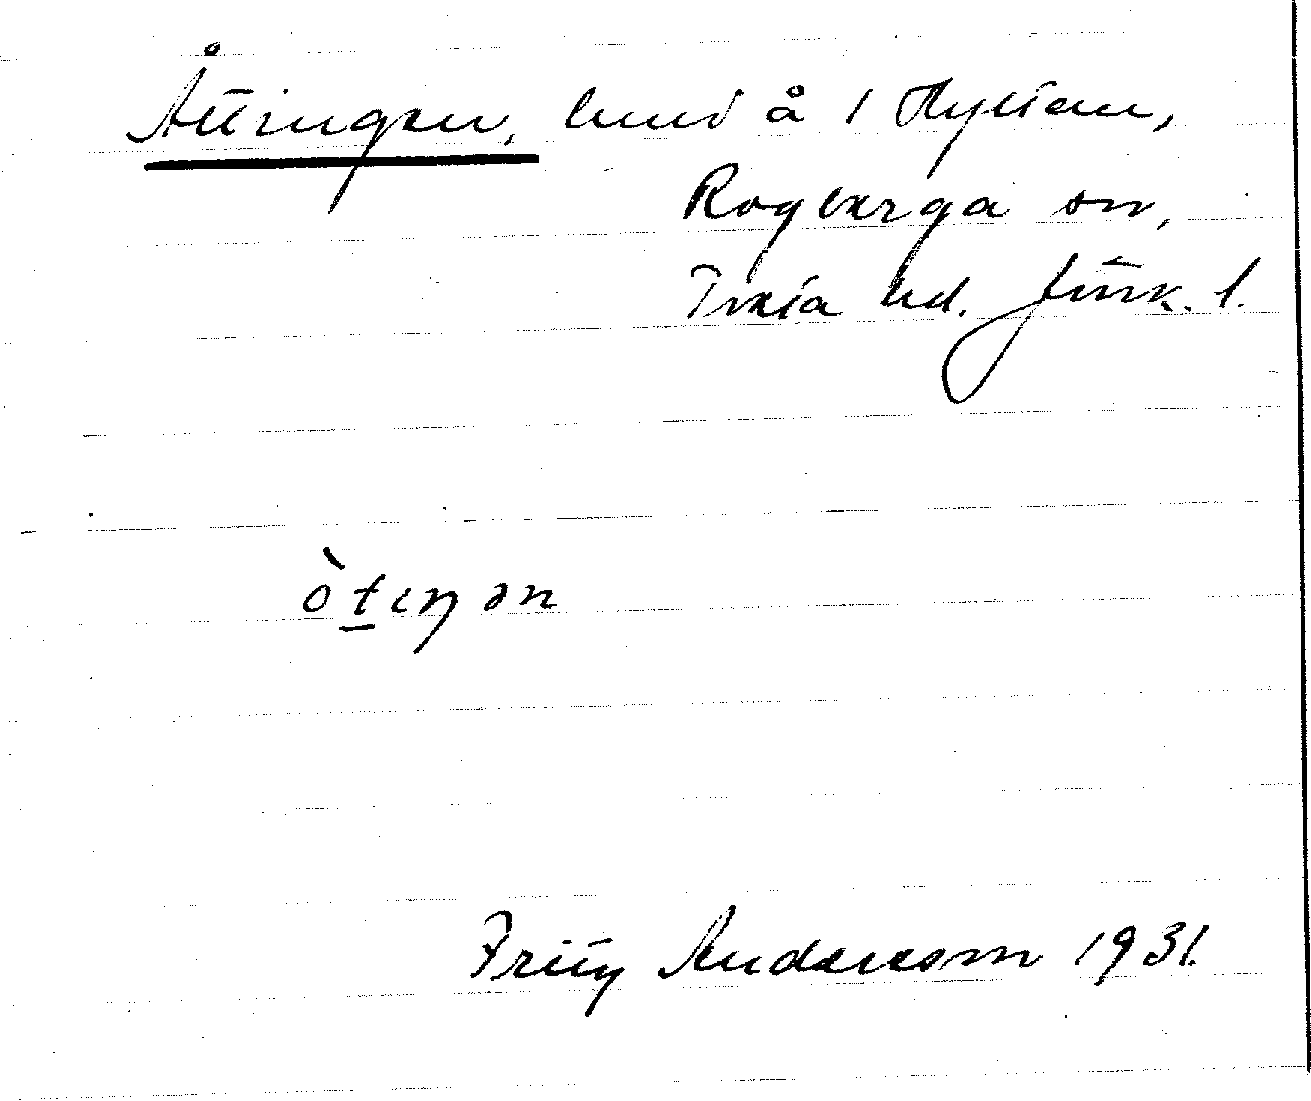 Åttingen, lund å 1 Hyltan,
Rogberga sn,
Tveta hd. Jönk. l.
òt̲ıŋən
Fritz Andersson 1931.